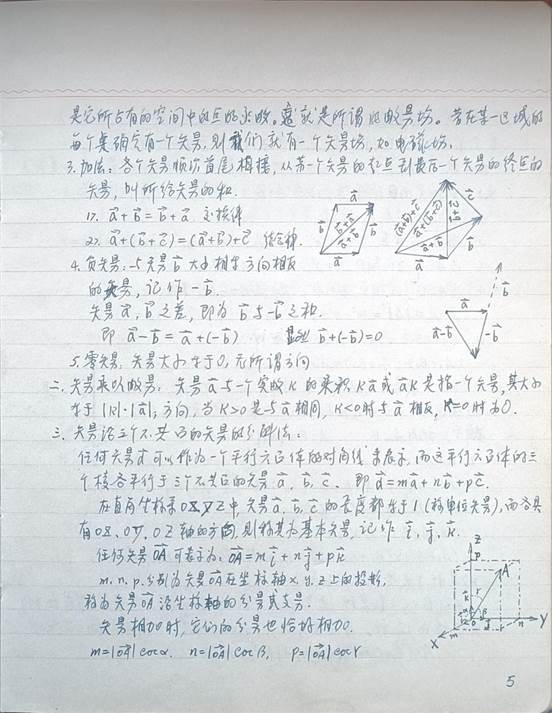 是它所占有的空间中的点的函数。这就是所谓的数量场。若在某一区域的
每个点确定有一个矢量,则我们就有一个矢量场,如电磁场。
3. 加法:各个矢量顺次首尾相接,从第一个矢量的始点到最后一个矢量的终点的
矢量,叫所给矢量的和.
1>. a⃗+b⃗=b⃗+a⃗ 交换律
2>. a⃗+(b⃗+c⃗)=(a⃗+b⃗)+c⃗ 结合律.
a⃗
b⃗
a⃗+b⃗
b⃗+a⃗
b⃗
a⃗
(a⃗+b⃗)+c⃗
a⃗+(b⃗+c⃗)
b⃗+c⃗
c⃗
a⃗+b⃗
b⃗
a⃗
4. 负矢量:与矢量b⃗大小相等方向相反
的矢量,记作-b⃗.
矢量a⃗,b⃗之差,即为a⃗与-b⃗之和.
即 a⃗-b⃗=a⃗+(-b⃗) b⃗+(-b⃗)=0
b⃗
a⃗
a⃗-b⃗
-b⃗
5. 零矢量:矢量大小等于0,无所谓方向
二. 矢量乘以数量:矢量a⃗与一个实数K的乘积Ka⃗或a⃗K是指一个矢量,其大小
等于|K|·|a⃗|,方向,当K>0是与a⃗相同,K<0时与a⃗相反,K=0时为0.
三. 矢量沿三个不共面的矢量的分解法:
任何矢量d⃗可以作为一个平行六面体的对角线来表示,而这平行六面体的三
个棱各平行于三个不共面的矢量a⃗、b⃗、c⃗. 即 d⃗=ma⃗+nb⃗+pc⃗.
在直角坐标系OXYZ中,矢量a⃗、b⃗、c⃗的长度都等于1(称单位矢量),而各具
有OX、OY、OZ轴的方向,则称其为基本矢量,记作 i⃗、j⃗、k⃗.
任何矢量OA⃗可表示为:OA⃗=mi⃗+nj⃗+pk⃗
m、n、p分别为矢量OA⃗在坐标轴x、y、z上的投影.
称为矢量OA⃗沿坐标轴的分量或支量.
矢量相加时,它们的分量也恰好相加.
m=|OA⃗|cosα. n=|OA⃗|cosβ, p=|OA⃗|cosγ
Z
p
A
O
n
Y
m
X
5